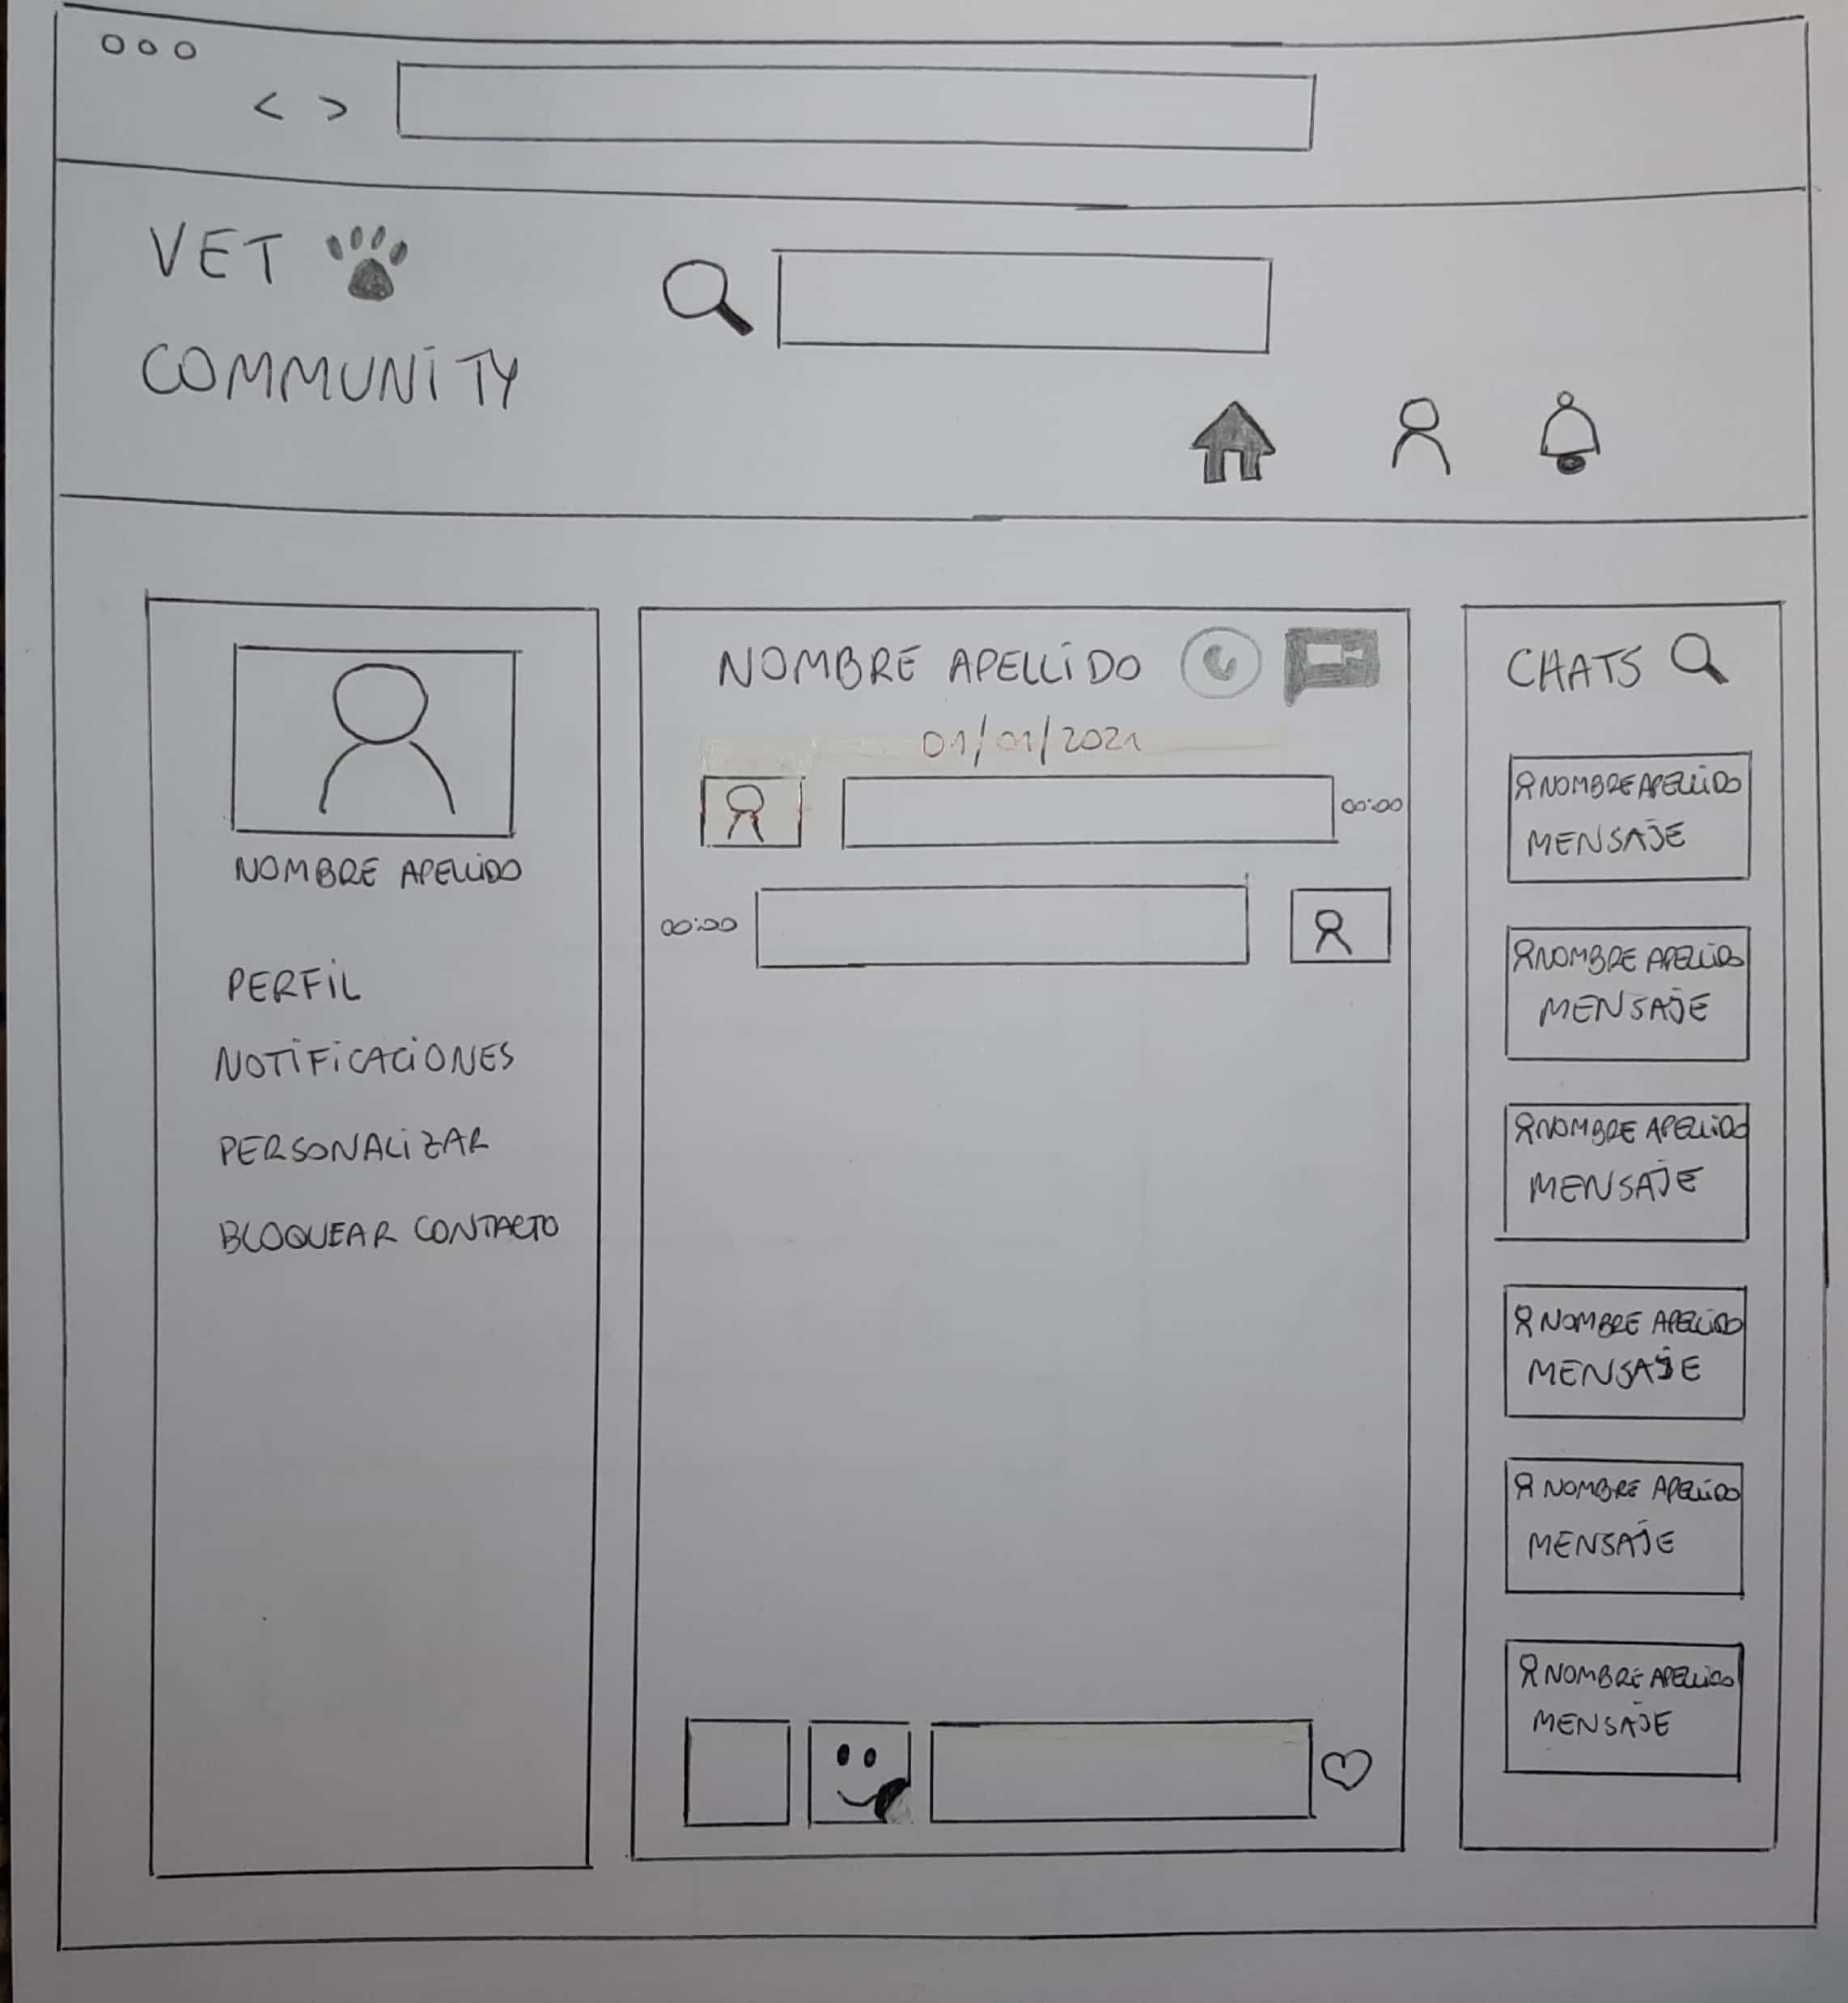 VET
COMMUNITY
NOMBRE APELLIDO
PERFIL
NOTIFICACIONES
PERSONALIZAR
BLOQUEAR CONTACTO
NOMBRE APELLIDO
01/01/2021
00:00
00:00
CHATS
NOMBRE APELLIDO
MENSAJE
NOMBRE APELLIDO
MENSAJE
NOMBRE APELLIDO
MENSAJE
NOMBRE APELLIDO
MENSAJE
NOMBRE APELLIDO
MENSAJE
NOMBRE APELLIDO
MENSAJE